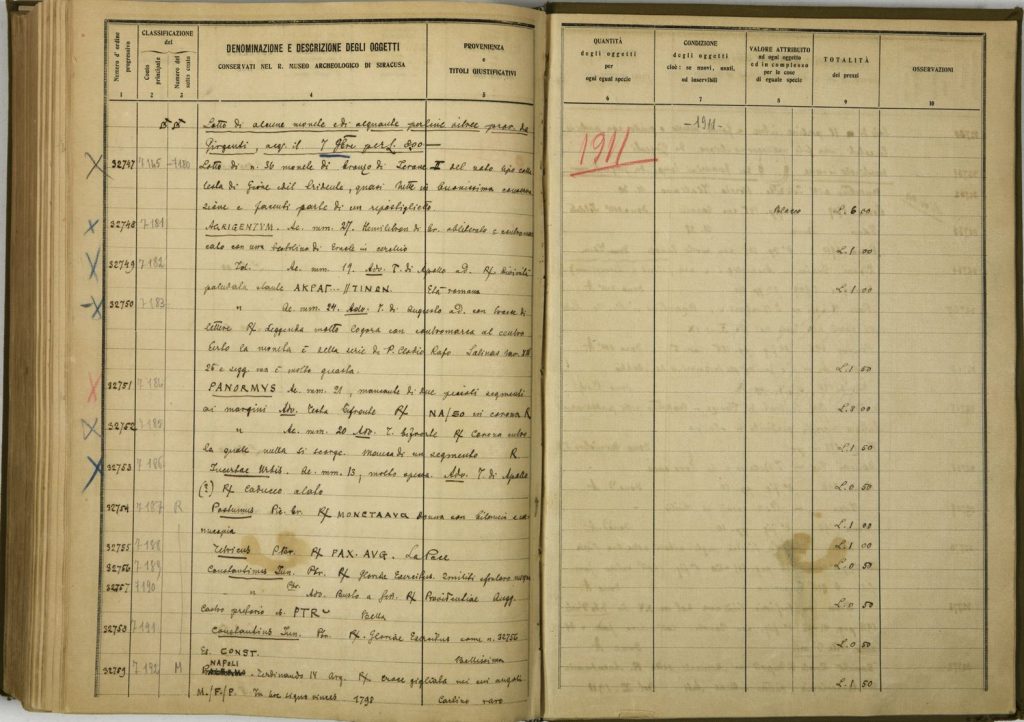 Numero d'ordine progressivo
CLASSIFICAZIONE del
Conto principale
Numero del sotto conto
DENOMINAZIONE E DESCRIZIONE DEGLI OGGETTI
CONSERVATI NEL R. MUSEO ARCHEOLOGICO DI SIRACUSA
PROVENIENZA
e
TITOLI GIUSTIFICATIVI
1 2 3 4 5
Lotto di alcune monete e di alquante perline vitree prov. da
Girgenti, acq. il 7 9bre per L. 200
32747 7165 -7180 Lotto di n. 36 monete di bronzo di Ierone II del noto tipo colla
testa di Gerone e del tridente, quasi tutte in buonissima conser
zione e facenti parte di un ripostiglietto.
32748 7181 AGRIGENTVM. Ae. mm. 27. Hemilitron di br. obliterato e contromar
cato con una testolina di Eracle in cerchio
32749 7182 Id. Ae. mm. 19. Adv. T. di Apollo a d. R/ Divinità
paludata stante ΑΚΡΑΓ..ΤΙΝΩΝ Età romana
32750 7183 " Ae. mm. 24. Adv. T. di Augusto a d. con tracce di
lettere R/ Leggenda molto logora con contromarca al centro
Certo la moneta è della serie di P. Clodio Rufo Salinas tav. XII
25 e segg. ma è molto guasta.
32751 7184 PANORMVS Ae. mm. 21, mancante di due piccoli segmenti
ai margini Adv. Testa bifronte R/ NA/SO in corona R
32752 7185 " Ae. mm. 20 Adv. T. bifronte R/ Corona entro
la quale nulla si scorge. Manca di un segmento R
32753 7186 Incertae Urbis. Ae. mm. 13, molto spessa. Adv. T. di Apollo
(?) R/ Caduceo alato
32754 7187 R Postumus Pic. br. R/ MONETA AVG Donna con bilancia e cor
nucopia
32755 7188 Tetricus Pbr. R/ PAX. AVG. La Pace
32756 7189 Constantinus Iun. Pbr. R/ Gloriae Exercitus. 2 militi
32757 7190 " Pbr. Adv. Busto a sin. R/ Providentiae Augg.
Castro pretorio es. PTR Bella
32758 7191 Constantius Iun. Pbr. R/ Gloriae Exercitus come n. 32756
Es. CONST. Bellissima
32759 7192 M NAPOLI Ferdinando IV Arg. R/ Croce gigliata nei cui angoli
M./F./P. In hoc signo vinces 1798 Carlino raro
QUANTITÀ
degli oggetti
per
ogni egual specie
CONDIZIONE
degli oggetti
cioè: se nuovi, usati,
od inservibili
VALORE ATTRIBUITO
ad ogni oggetto
ed in complesso
per le cose
di eguale specie
TOTALITÀ
dei prezzi
OSSERVAZIONI
6 7 8 9 10
1911
-1911-
L. 6 00
L. 1 00
L. 1 00
L. 1 50
L. 3 00
L. 1 50
L. 0 50
L. 1 00
L. 1 00
L. 0 50
L. 0 50
L. 0 50
L. 1 50